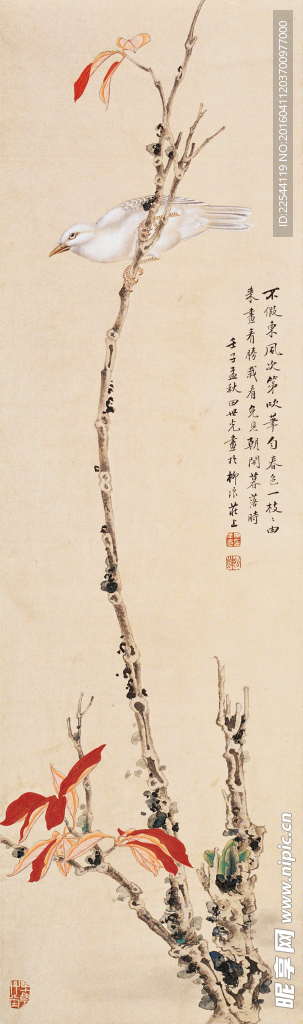 不假東風次第吹筆勻春色一枝枝由
来畫看勝栽看免見朝開暮落時
壬子孟秋田世光畫於柳浪莊上
昵享网 www.nipic.cn
ID:22544119 NO:20160411203700977000